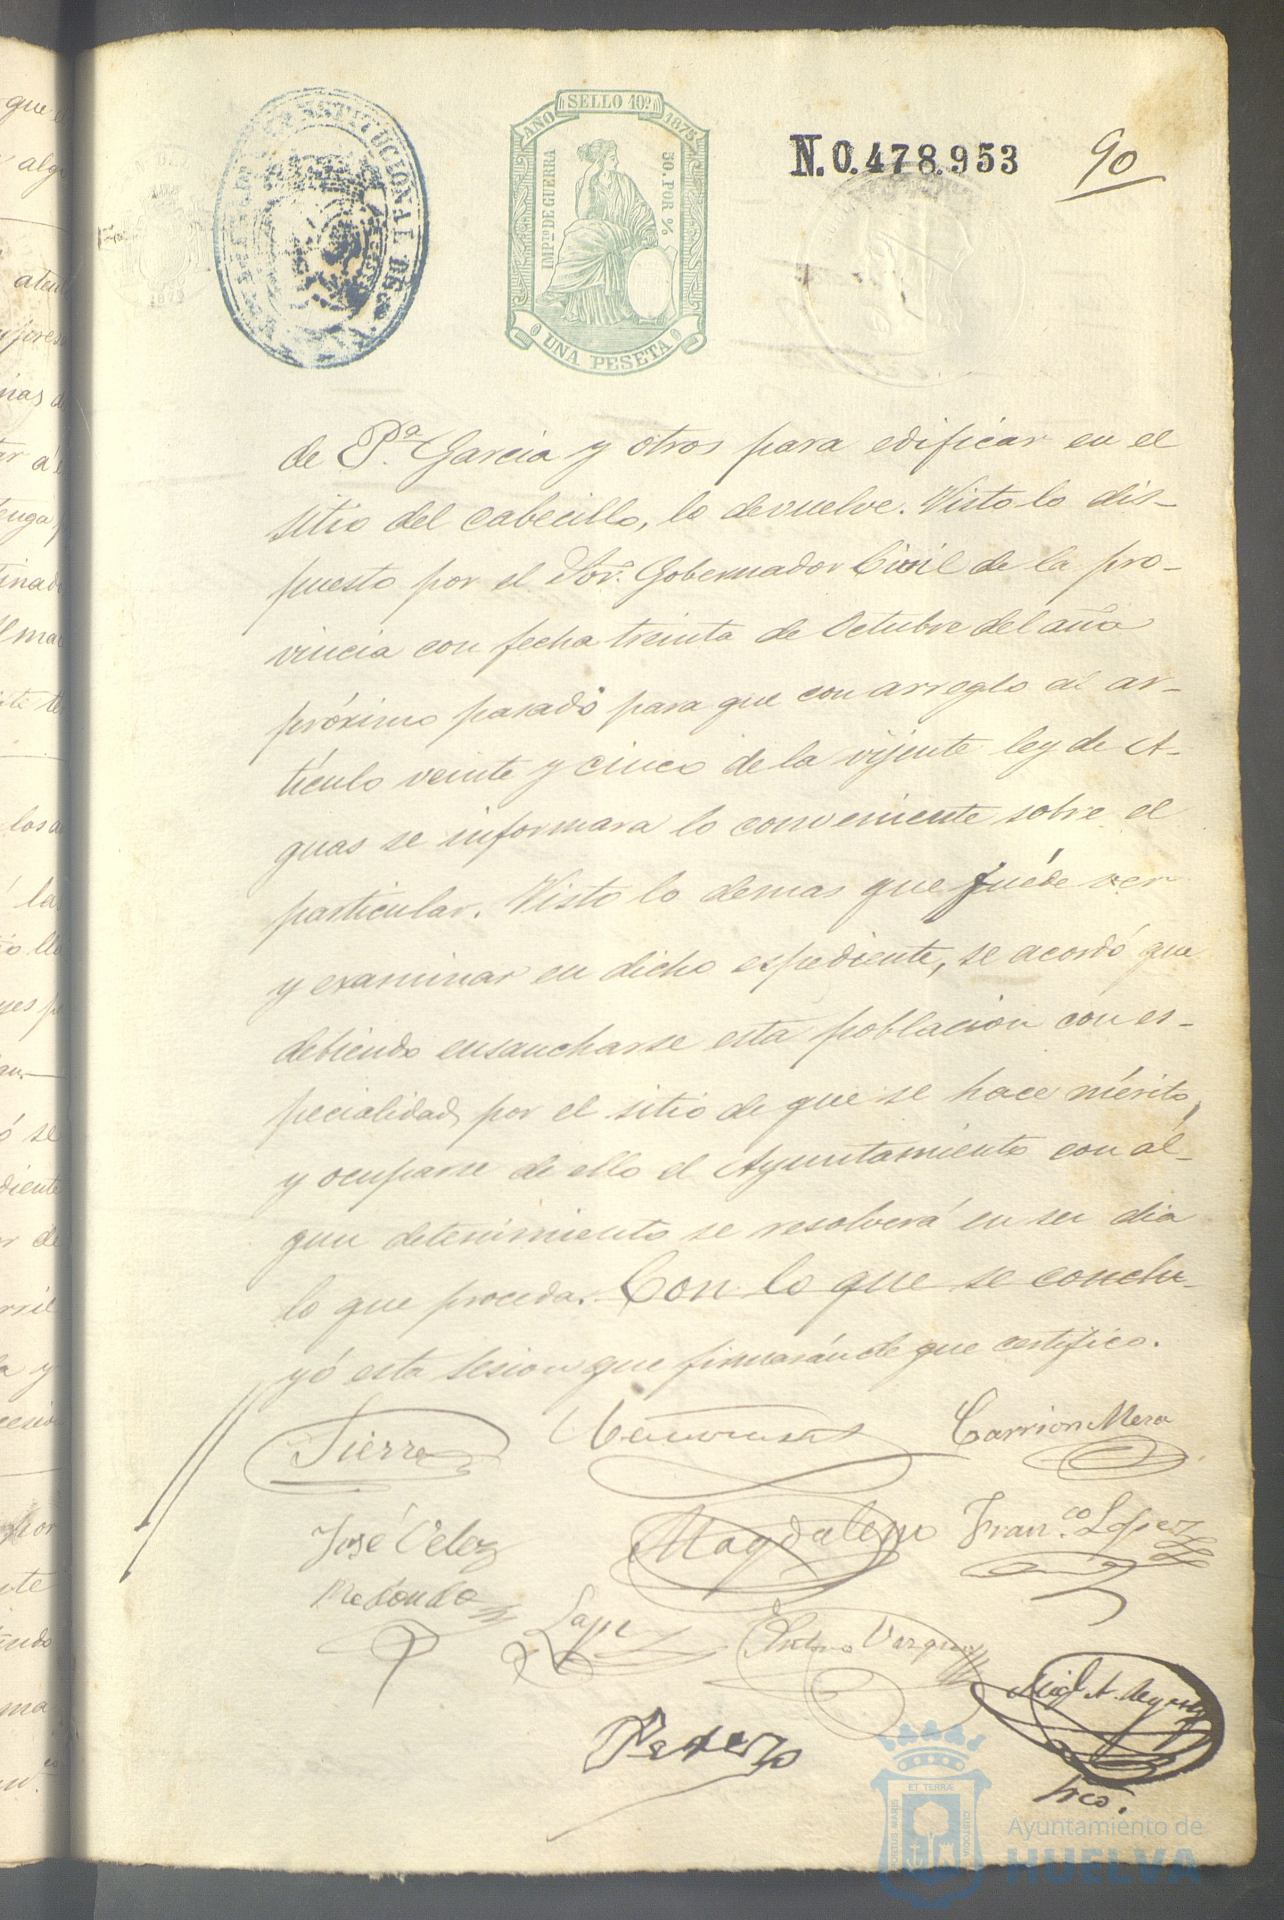 AÑO SELLO 10º 1875
IMPTO DE GUERRA
50 POR %
UNA PESETA
CONSTITUCIONAL DE
N.0.478.953
90
de P.ª Garcia y otros para edificar en el
sitio del Cabecillo, lo devuelve. Visto lo dis-
puesto por el Sor. Gobernador Civil de la pro-
vincia con fecha treinta de Octubre del año
próximo pasado para que con arreglo al ar-
tículo veinte y cinco de la vijente ley de A-
guas se informara lo conveniente sobre el
particular. Visto lo demas que fuéde ver
y examinar en dicho espediente, se acordó que
debiendo ensancharse esta poblacion con es-
pecialidad por el sitio de que se hace mérito,
y ocuparse de ello el Ayuntamiento con al-
gun detenimiento se resolverá en su dia
lo que proceda. Con lo que se conclu-
yó esta sesion que firmarán de que certifico.
Sierra
Carrion Mera
José Velez
Magdaleno
Fran.co Lopez
Redondo
Antonio Vazquez
Srio.
ET TERRÆ
PORTUS MARIS
CUSTODIA
Ayuntamiento de
HUELVA